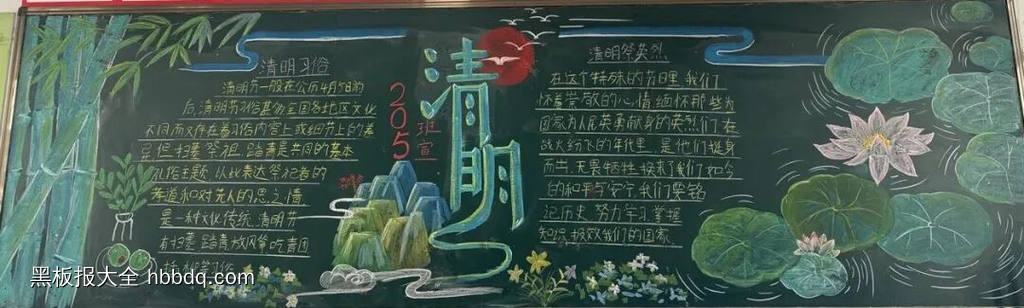 清明习俗
清明节一般在公历4月5日前
后,清明节习俗是
不同而又存在着习俗内容上或细节上的差
异,但扫墓祭祖、踏青是共同的基本
礼俗主题,以此表达祭祀者的
孝道和对先人的思之情
是一种文化传统,清明节
有扫墓 踏青 放风筝 吃青团
205
班
宣
清明
清明祭英烈
在这个特殊的节日里,我们
怀着崇敬的心情缅怀那些为
国家为人民英勇献身的英烈们,在
战火纷飞的年代里,是他们挺身
而出,无畏牺牲,换来了我们如今
的和平与安宁,我们要铭
记历史,努力学习,掌握
知识,报效我们的国家.
黑板报大全 hbbdq.com